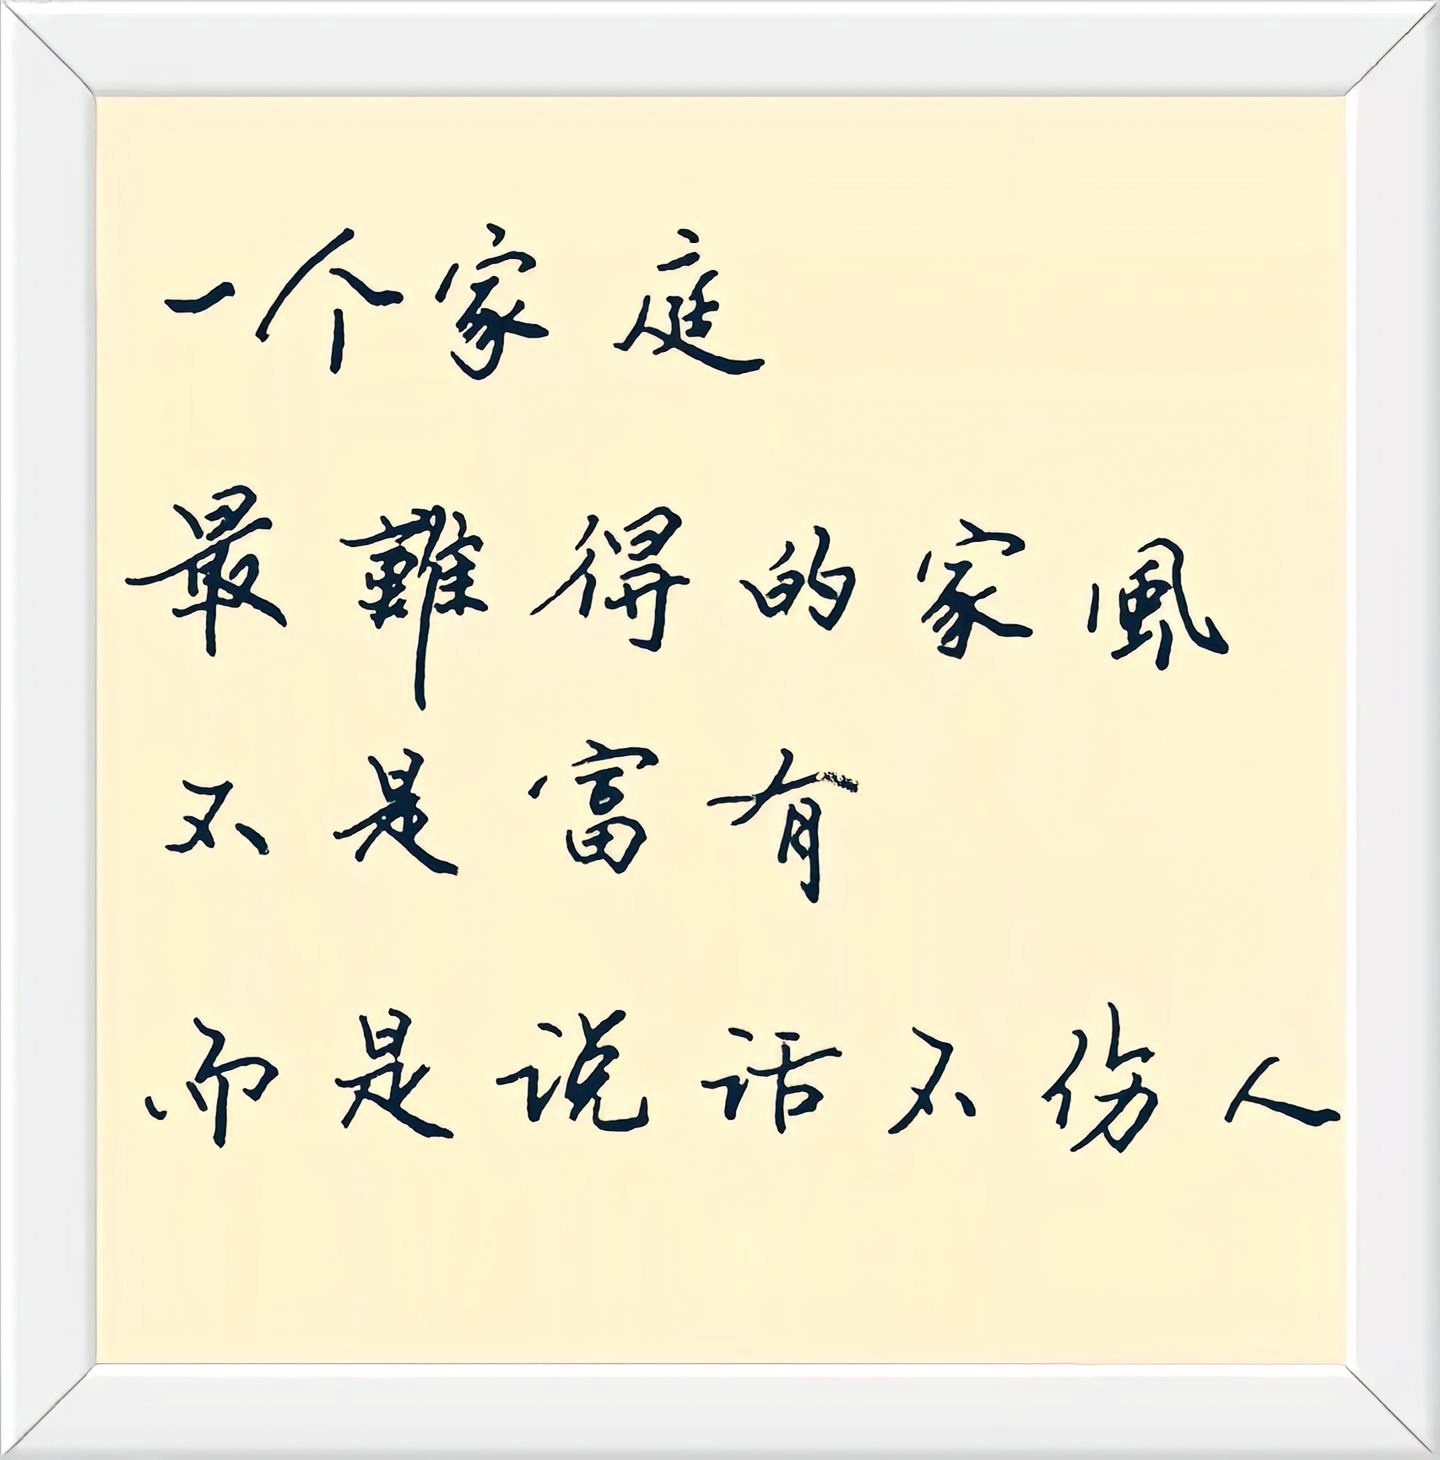 一个家庭
最難得的家風
不是富有
而是说话不伤人